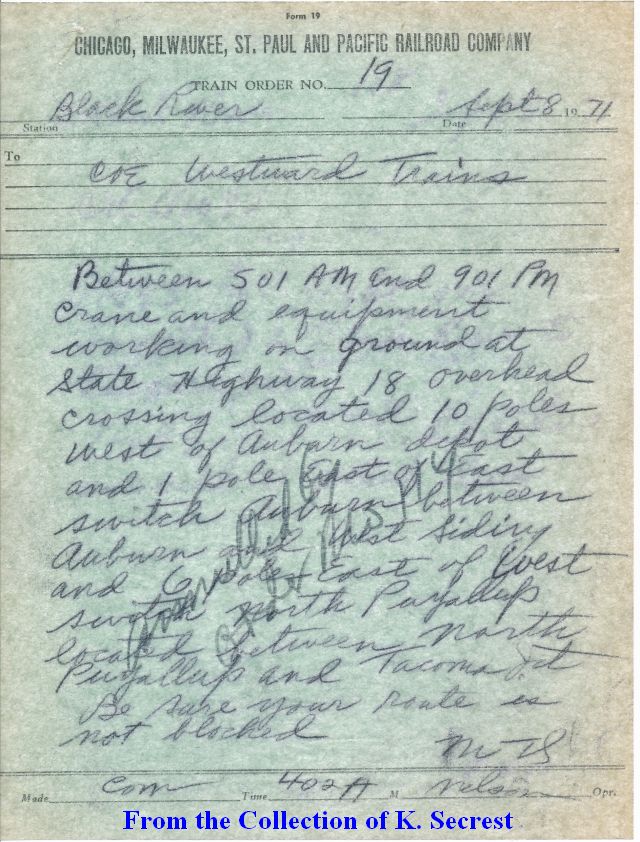 Form 19
CHICAGO, MILWAUKEE, ST. PAUL AND PACIFIC RAILROAD COMPANY
TRAIN ORDER NO. 19
Black River Sept 8 1971
Station Date
To
C&E Westward Trains
Between 501 AM and 901 PM
crane and equipment
working on ground at
State Highway 18 overhead
crossing located 10 poles
west of Auburn depot
and 1 pole East of East
switch Auburn between
Auburn and West Siding
and 6 pole East of West
switch North Puyallup
located between North
Puyallup and Tacoma Jct
Be sure your route is
not blocked
Made Com Time 402 A M Nelson Opr.
From the Collection of K. Secrest